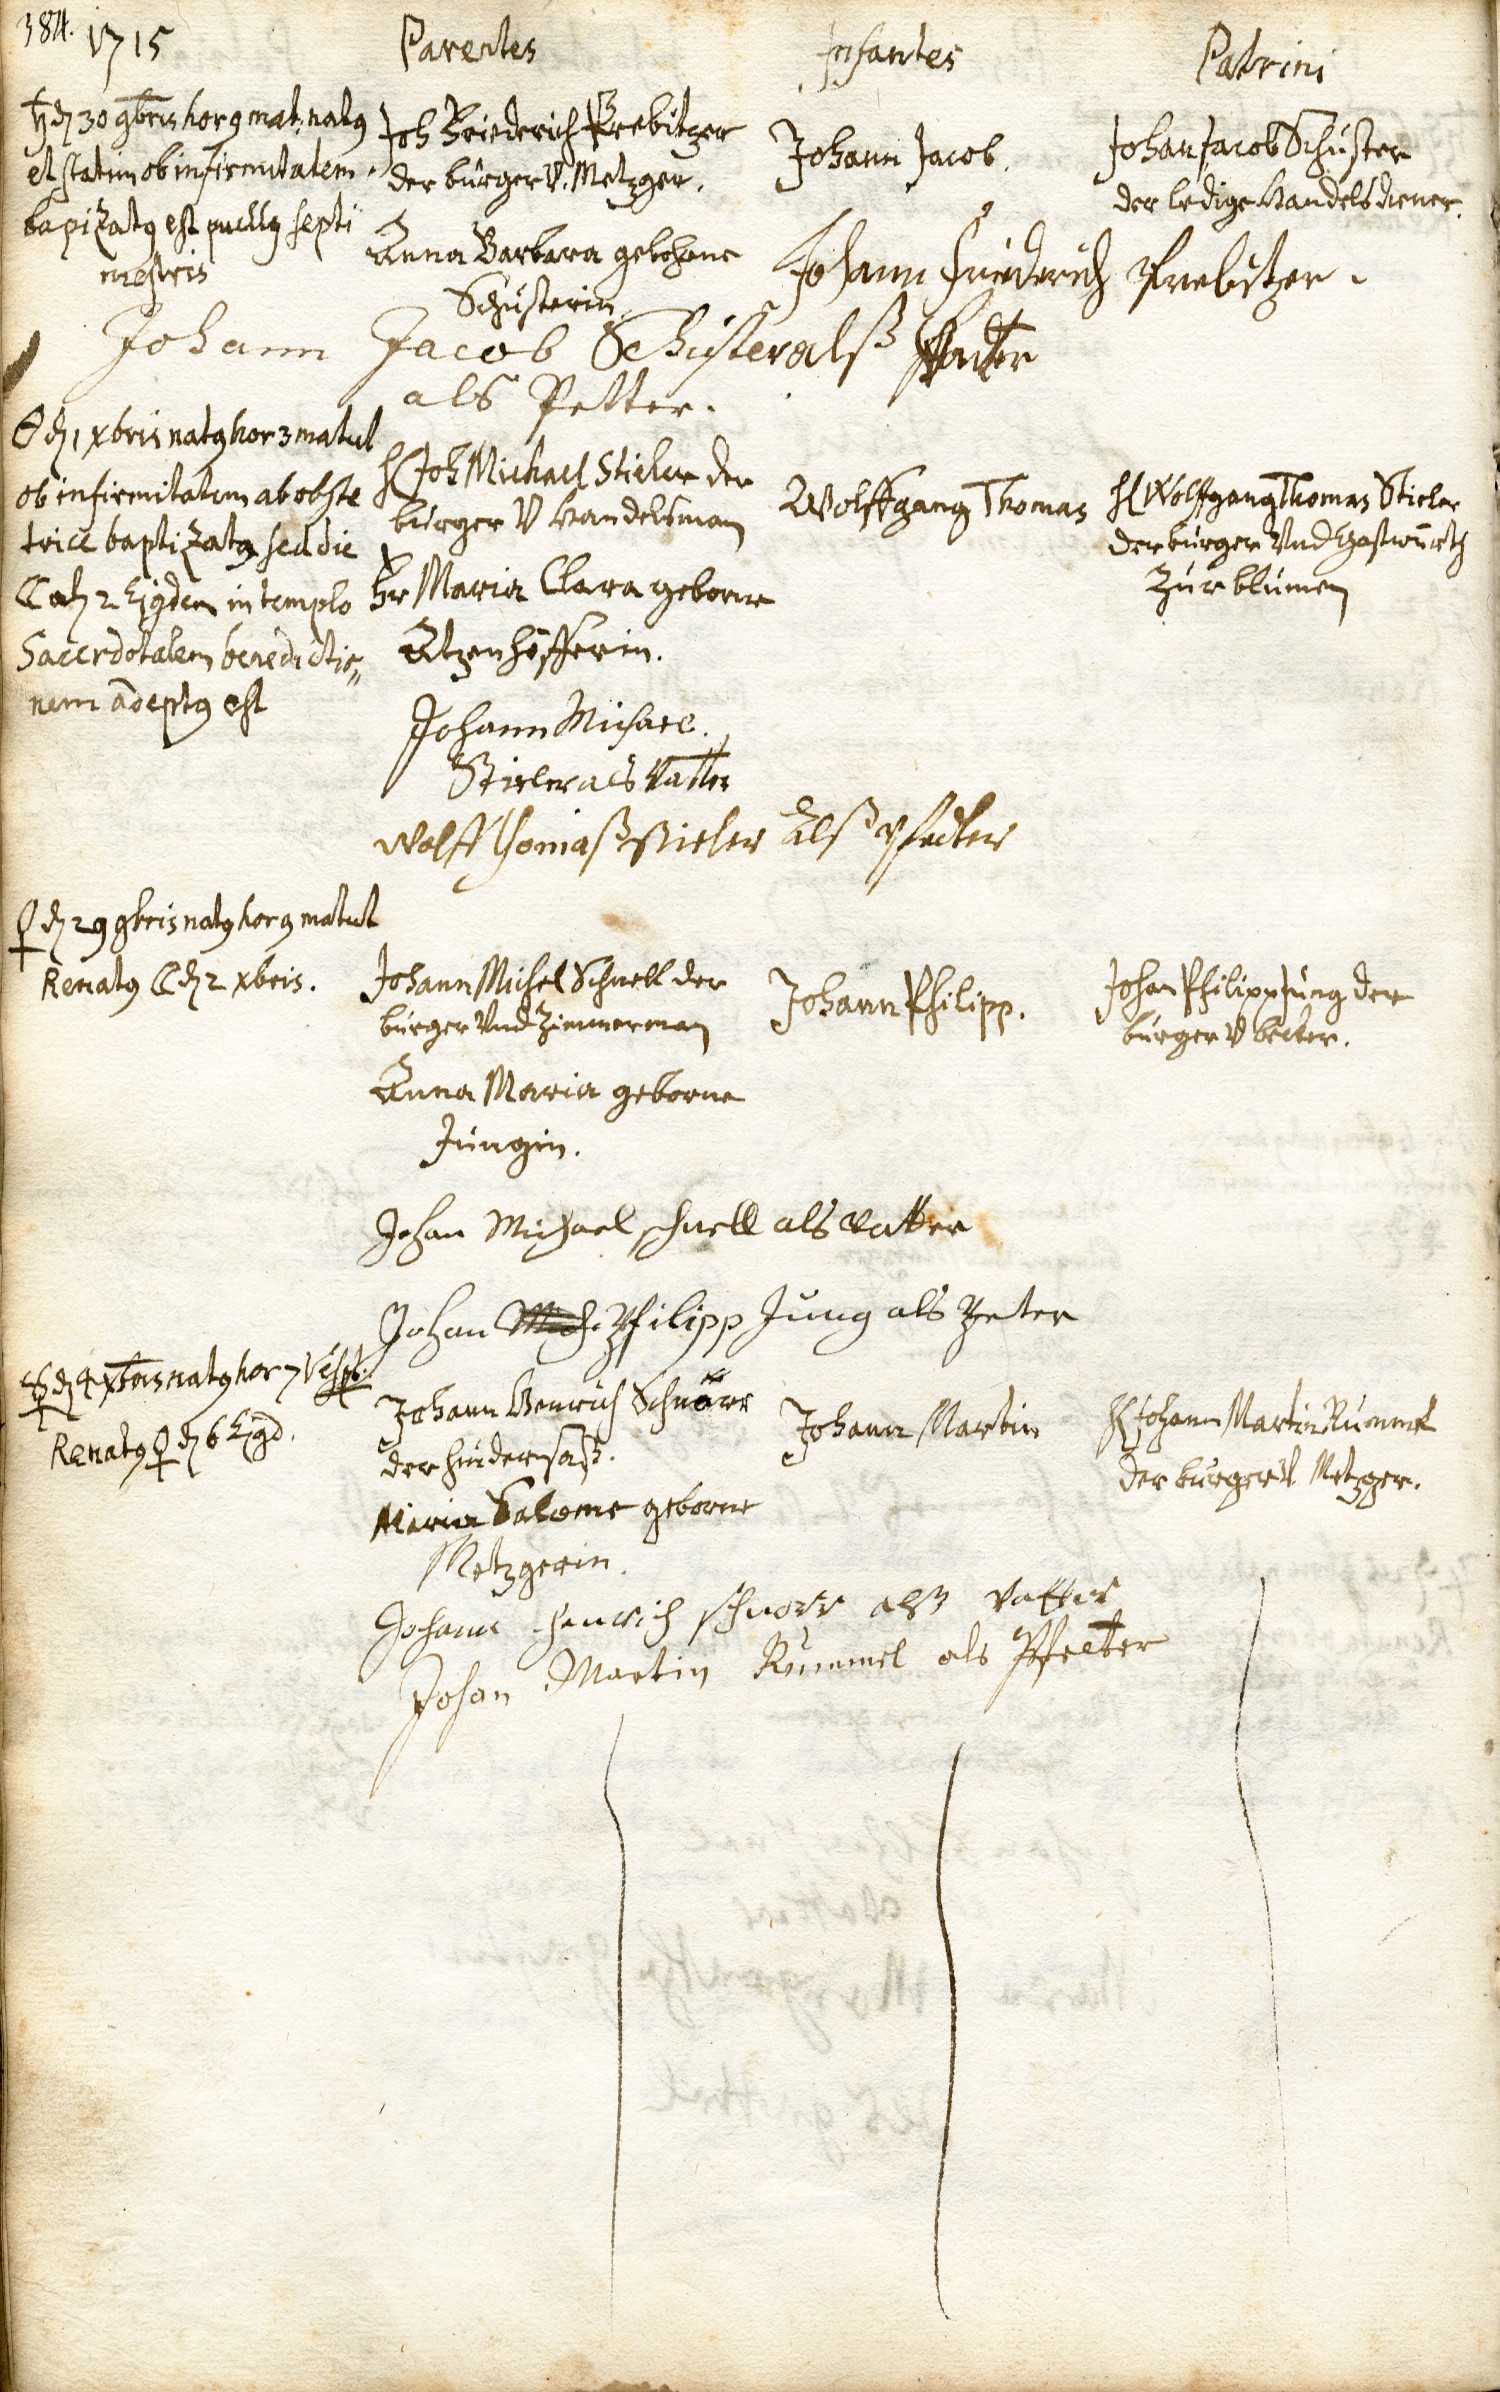 384. 1715 Parentes Infantes Patrini
♄ d 30 9bris hor 9 mat. natq
et statim ob infirmitatem
baptizatq est puellq septi
mestris
Joh Friederich Prebitzer
der burger V. Metzger.
Anna Barbara gebohrne
Schusterin.
Johann Jacob.
Johan Jacob Schuster
der ledige Handelsdiener.
Johann Friederich Prebitzer.
Johann Jacob Schuster alß
als Petter.
☉ d 1 Xbris natq hor 3 matut
ob infirmitatem ab obste
trice baptizatq sed die
☾ d 2 Ejqdem in templo
Sacerdotalem benedictio„
nem adeptq est
H Joh Michael Stieler der
burger V Handelsman
Fr Maria Clara geborne
Atzenhöfferin.
Wolffgang Thomas
H Wolffgang Thomas Stieler
der burger Vnd Gastwürth
Zur blumen
Johann Michael
Stieler als Vatter
Wolff Thomaß Stieler Alß Pfetter
♀ d 29 9bris natq hor 9 matut
Renatq ☾ d 2 Xbris.
Johann Michel Schnell der
burger Vnd Zimmerman
Anna Maria geborne
Jungin.
Johann Philipp.
Johan Philipp Jung der
burger V becker.
Johan Michael schnell als Vatter
Johan Philipp Jung als Peter
☿ d 4 Xbris natq hor 7 Vesp.
Renatq ♀ d 6 Ejqd.
Johann Henrich Schnörr
der hindersaß.
Maria Salome geborne
Metzgerin.
Johann Martin
H Johann Martin Rummel
der burger V Metzger.
Johann Henrich schnorr alß Vatter
Johan Martin Rummel als Pfetter